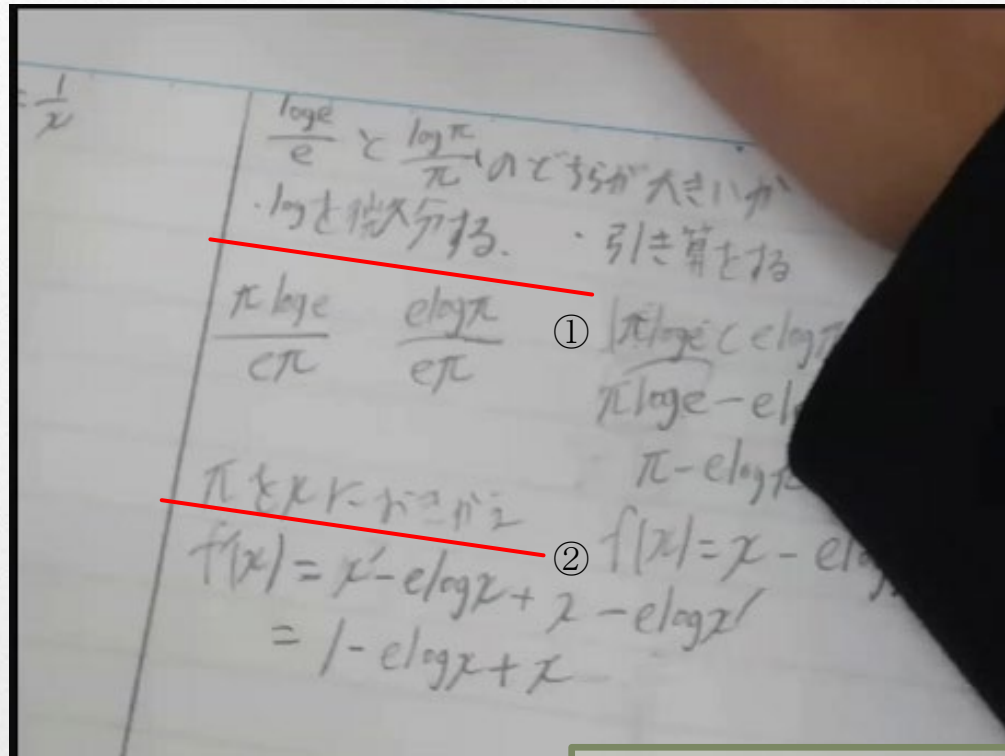 = 1/x
loge/e と logπ/π のどちらが大きいか
・logを微分する. ・引き算をする
①
πloge/eπ elogπ/eπ
πloge < elogπ
πloge - elo
π - elogπ
πをxにおきかえ
②
f(x) = x - elog
f'(x) = x' - elogx + x - elogx'
= 1 - elogx + x